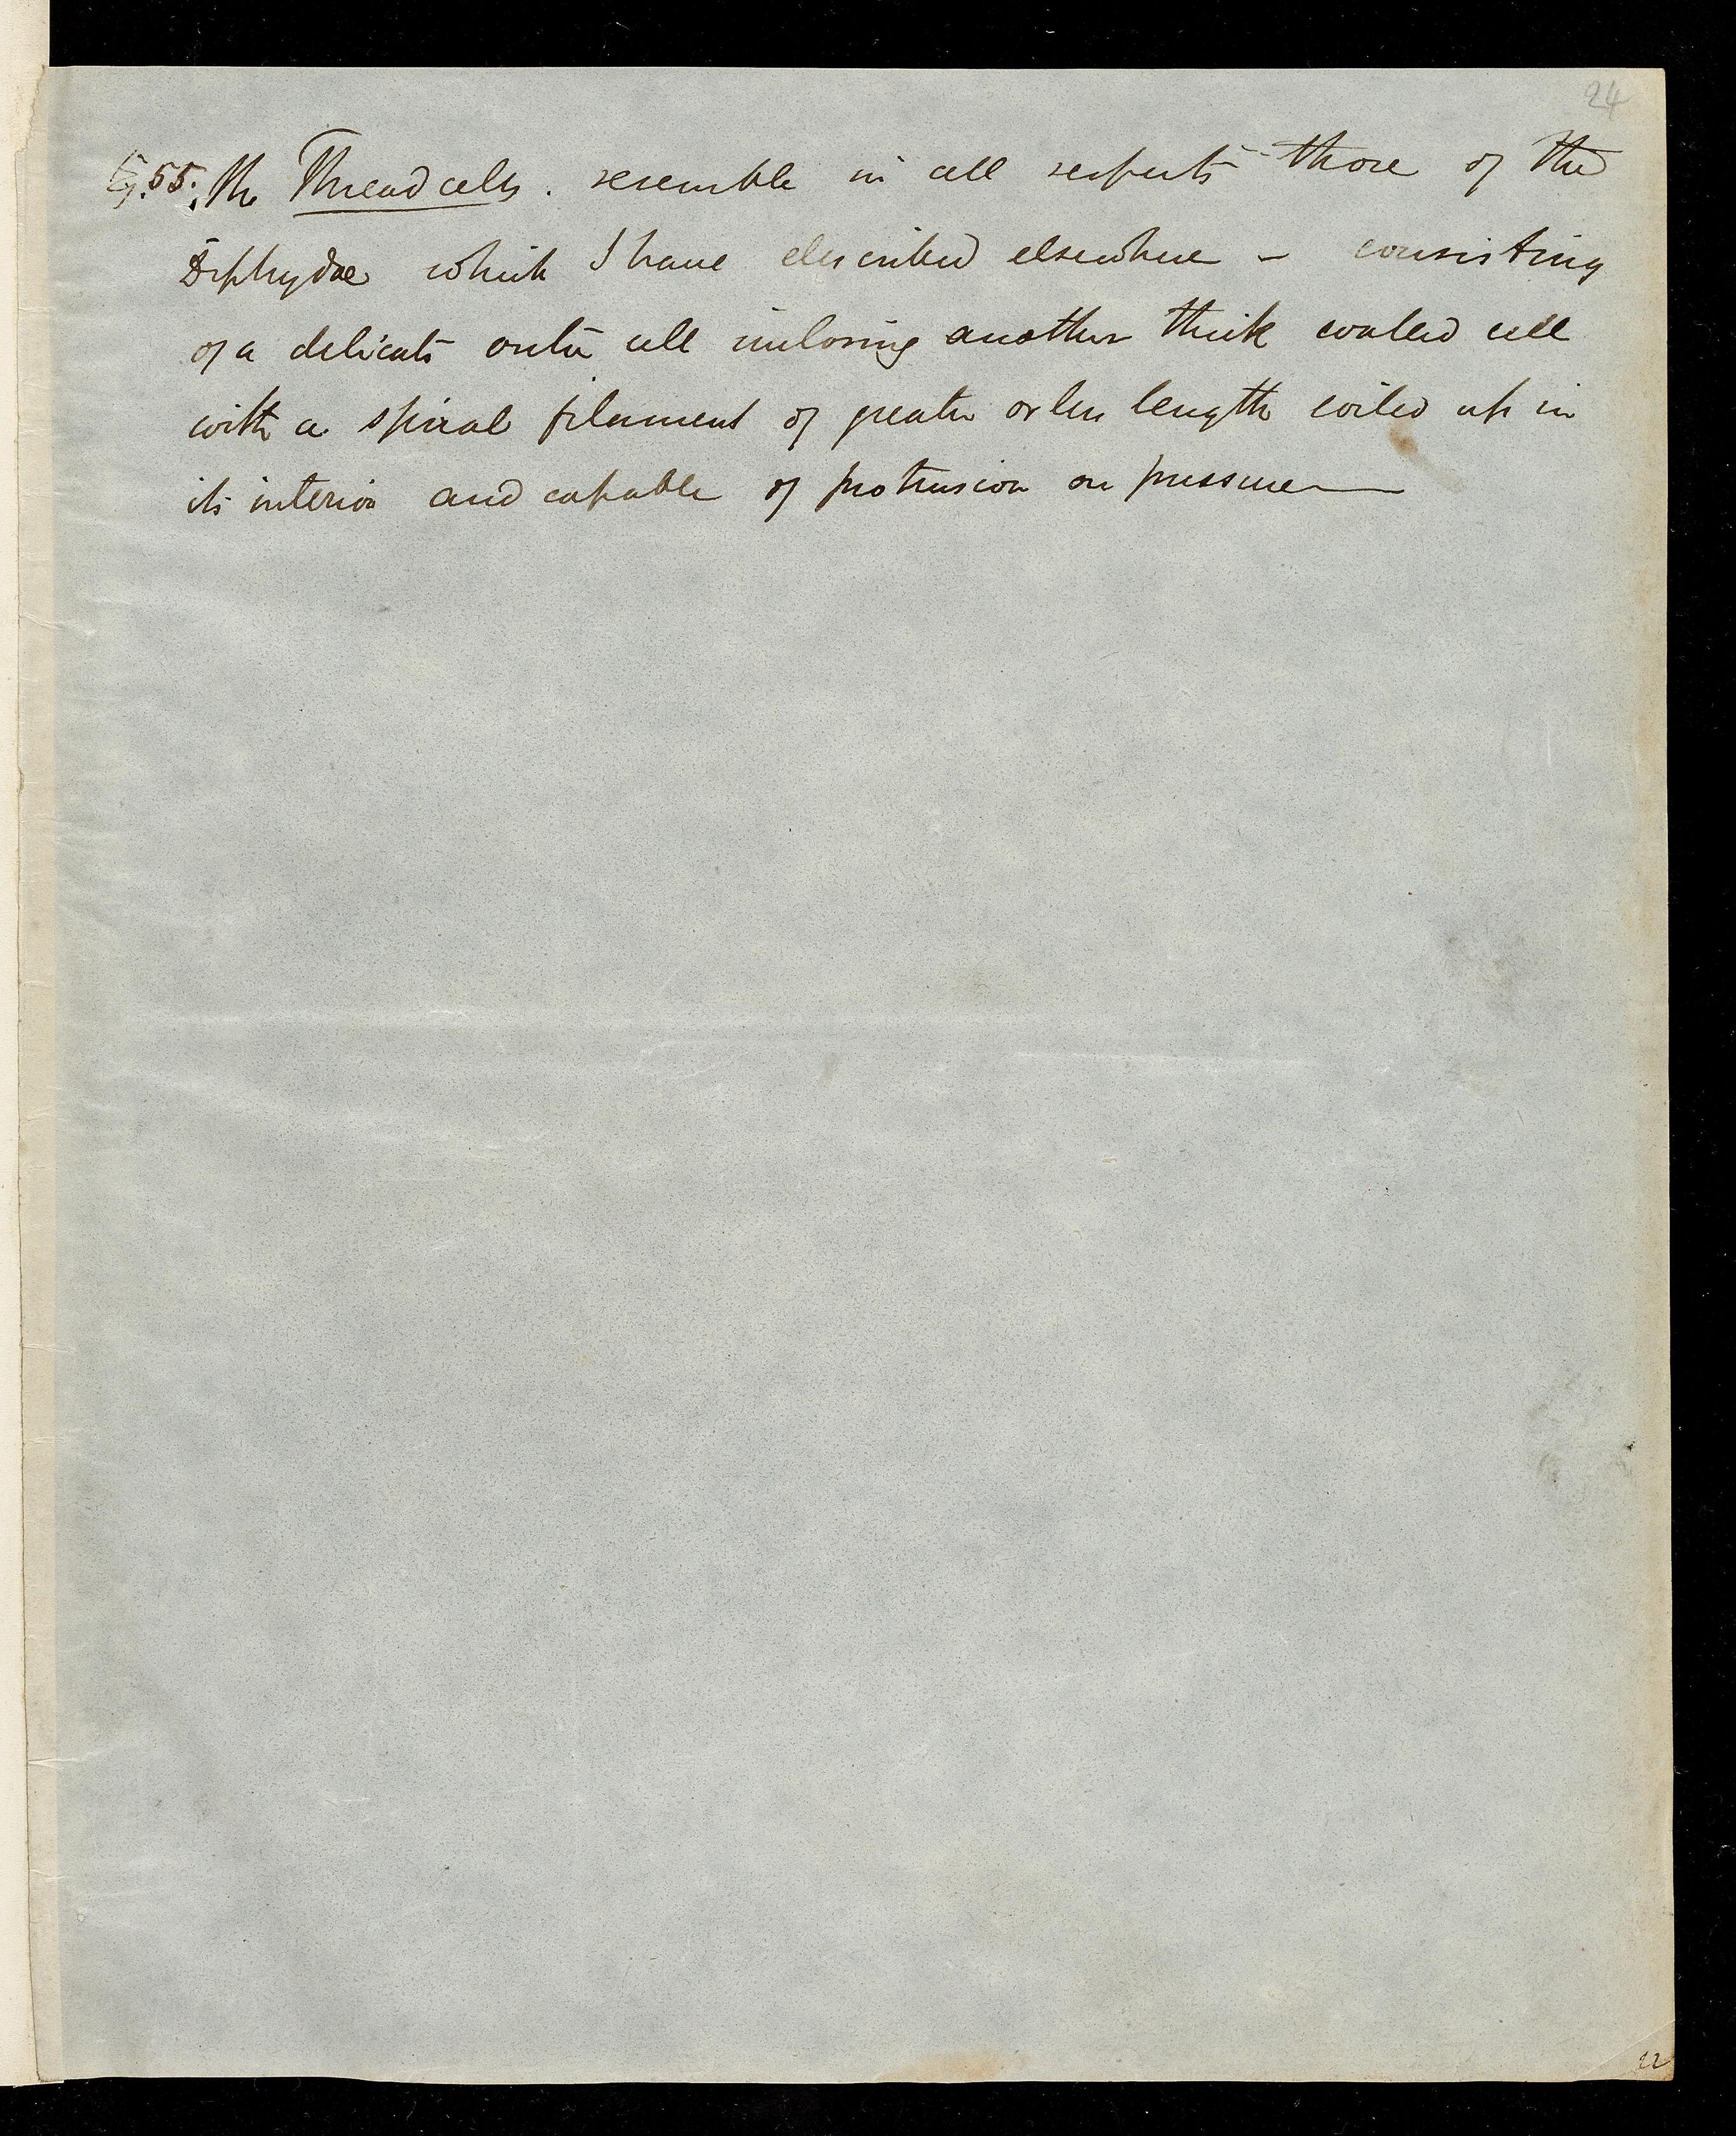 24
§.55. The Thread cells. resemble in all respects those of the
Diphydae which I have described elsewhere – consisting
of a delicate outer cell inclosing another thick walled cell
with a spiral filament of greater or less length coiled up in
its interior and capable of protrusion on pressure —
22